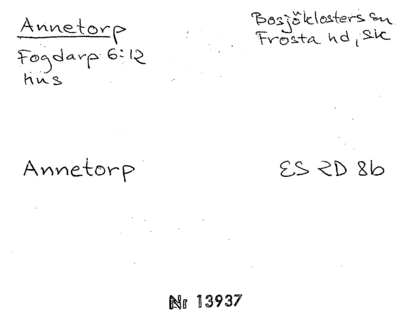 Annetorp
Fogdarp 6:12
hus
Bosjöklosters sn
Frosta hd, Sk
Annetorp
ES 2D 8b
Nr 13937